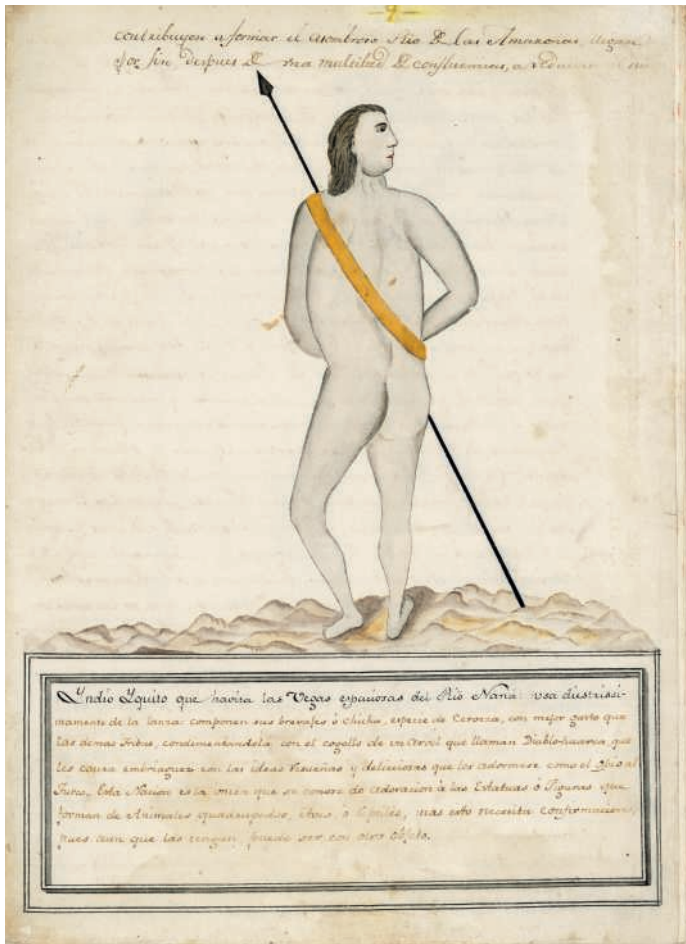 9
contribuyen a formar el asombroso Rio de las Amazonas, llegan
por fin despues de una multitud de confluencias, a reducir
Yndio Yquito que havita las Vegas espaciosas del Rio Naná: usa diestrissi-
mamente de la lanza: componen sus brevajes ó chicha, especie de Cerveza, con mejor gusto que
las demas Tribus, condimentandola con el cogollo de un Arvol que llaman Diablo-huasca, que
les causa embriaguez con las ideas risueñas y deliciosas que los adormese como el Opio al
Turco. Esta Nacion es la unica que se conose dá adoracion à las Estatuas ó Figuras que
forman de Animales quadrupedos, Aves, ó Reptiles, mas esto necesita confirmacion,
pues aun que las tengan, puede ser con otro objeto.